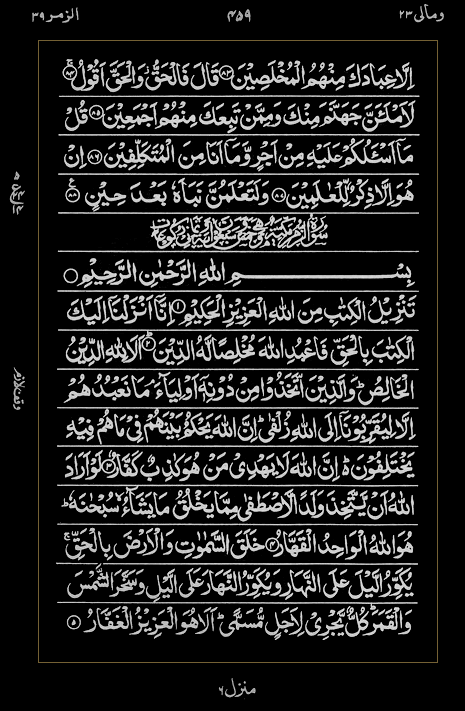 ومالی ۲۳ ۴۵۹ الزمر ۳۹
اِلَّا عِبَادَكَ مِنْهُمُ الْمُخْلَصِيْنَ ﴿۸۳﴾ قَالَ فَالْحَقُّ ؗ وَالْحَقَّ اَقُوْلُ ﴿۸۴﴾
لَاَمْلَـَٔنَّ جَهَنَّمَ مِنْكَ وَمِمَّنْ تَبِعَكَ مِنْهُمْ اَجْمَعِيْنَ ﴿۸۵﴾ قُلْ
مَاۤ اَسْـَٔلُكُمْ عَلَيْهِ مِنْ اَجْرٍ وَّمَاۤ اَنَا مِنَ الْمُتَكَلِّفِيْنَ ﴿۸۶﴾ اِنْ
هُوَ اِلَّا ذِكْرٌ لِّلْعٰلَمِيْنَ ﴿۸۷﴾ وَلَتَعْلَمُنَّ نَبَاَهٗ بَعْدَ حِيْنٍ ﴿۸۸﴾
سورة الزمر مكية وهى خمس وسبعون اية وثمان ركوعات
بِسْمِ اللهِ الرَّحْمٰنِ الرَّحِيْمِ
تَنْزِيْلُ الْكِتٰبِ مِنَ اللهِ الْعَزِيْزِ الْحَكِيْمِ ﴿۱﴾ اِنَّاۤ اَنْزَلْنَاۤ اِلَيْكَ
الْكِتٰبَ بِالْحَقِّ فَاعْبُدِ اللهَ مُخْلِصًا لَّهُ الدِّيْنَ ﴿۲﴾ اَلَا لِلهِ الدِّيْنُ
الْخَالِصُ ؕ وَالَّذِيْنَ اتَّخَذُوْا مِنْ دُوْنِهٖۤ اَوْلِيَآءَ ۘ مَا نَعْبُدُهُمْ
اِلَّا لِيُقَرِّبُوْنَاۤ اِلَى اللهِ زُلْفٰى ؕ اِنَّ اللهَ يَحْكُمُ بَيْنَهُمْ فِيْ مَا هُمْ فِيْهِ
يَخْتَلِفُوْنَ ؕ اِنَّ اللهَ لَا يَهْدِيْ مَنْ هُوَ كٰذِبٌ كَفَّارٌ ﴿۳﴾ لَوْ اَرَادَ
اللهُ اَنْ يَّتَّخِذَ وَلَدًا لَّاصْطَفٰى مِمَّا يَخْلُقُ مَا يَشَآءُ ۙ سُبْحٰنَهٗ ؕ
هُوَ اللهُ الْوَاحِدُ الْقَهَّارُ ﴿۴﴾ خَلَقَ السَّمٰوٰتِ وَالْاَرْضَ بِالْحَقِّ ۚ
يُكَوِّرُ الَّيْلَ عَلَى النَّهَارِ وَيُكَوِّرُ النَّهَارَ عَلَى الَّيْلِ وَسَخَّرَ الشَّمْسَ
وَالْقَمَرَ ؕ كُلٌّ يَّجْرِيْ لِاَجَلٍ مُّسَمًّى ؕ اَلَا هُوَ الْعَزِيْزُ الْغَفَّارُ ﴿۵﴾
وقف لازم
منزل ۶